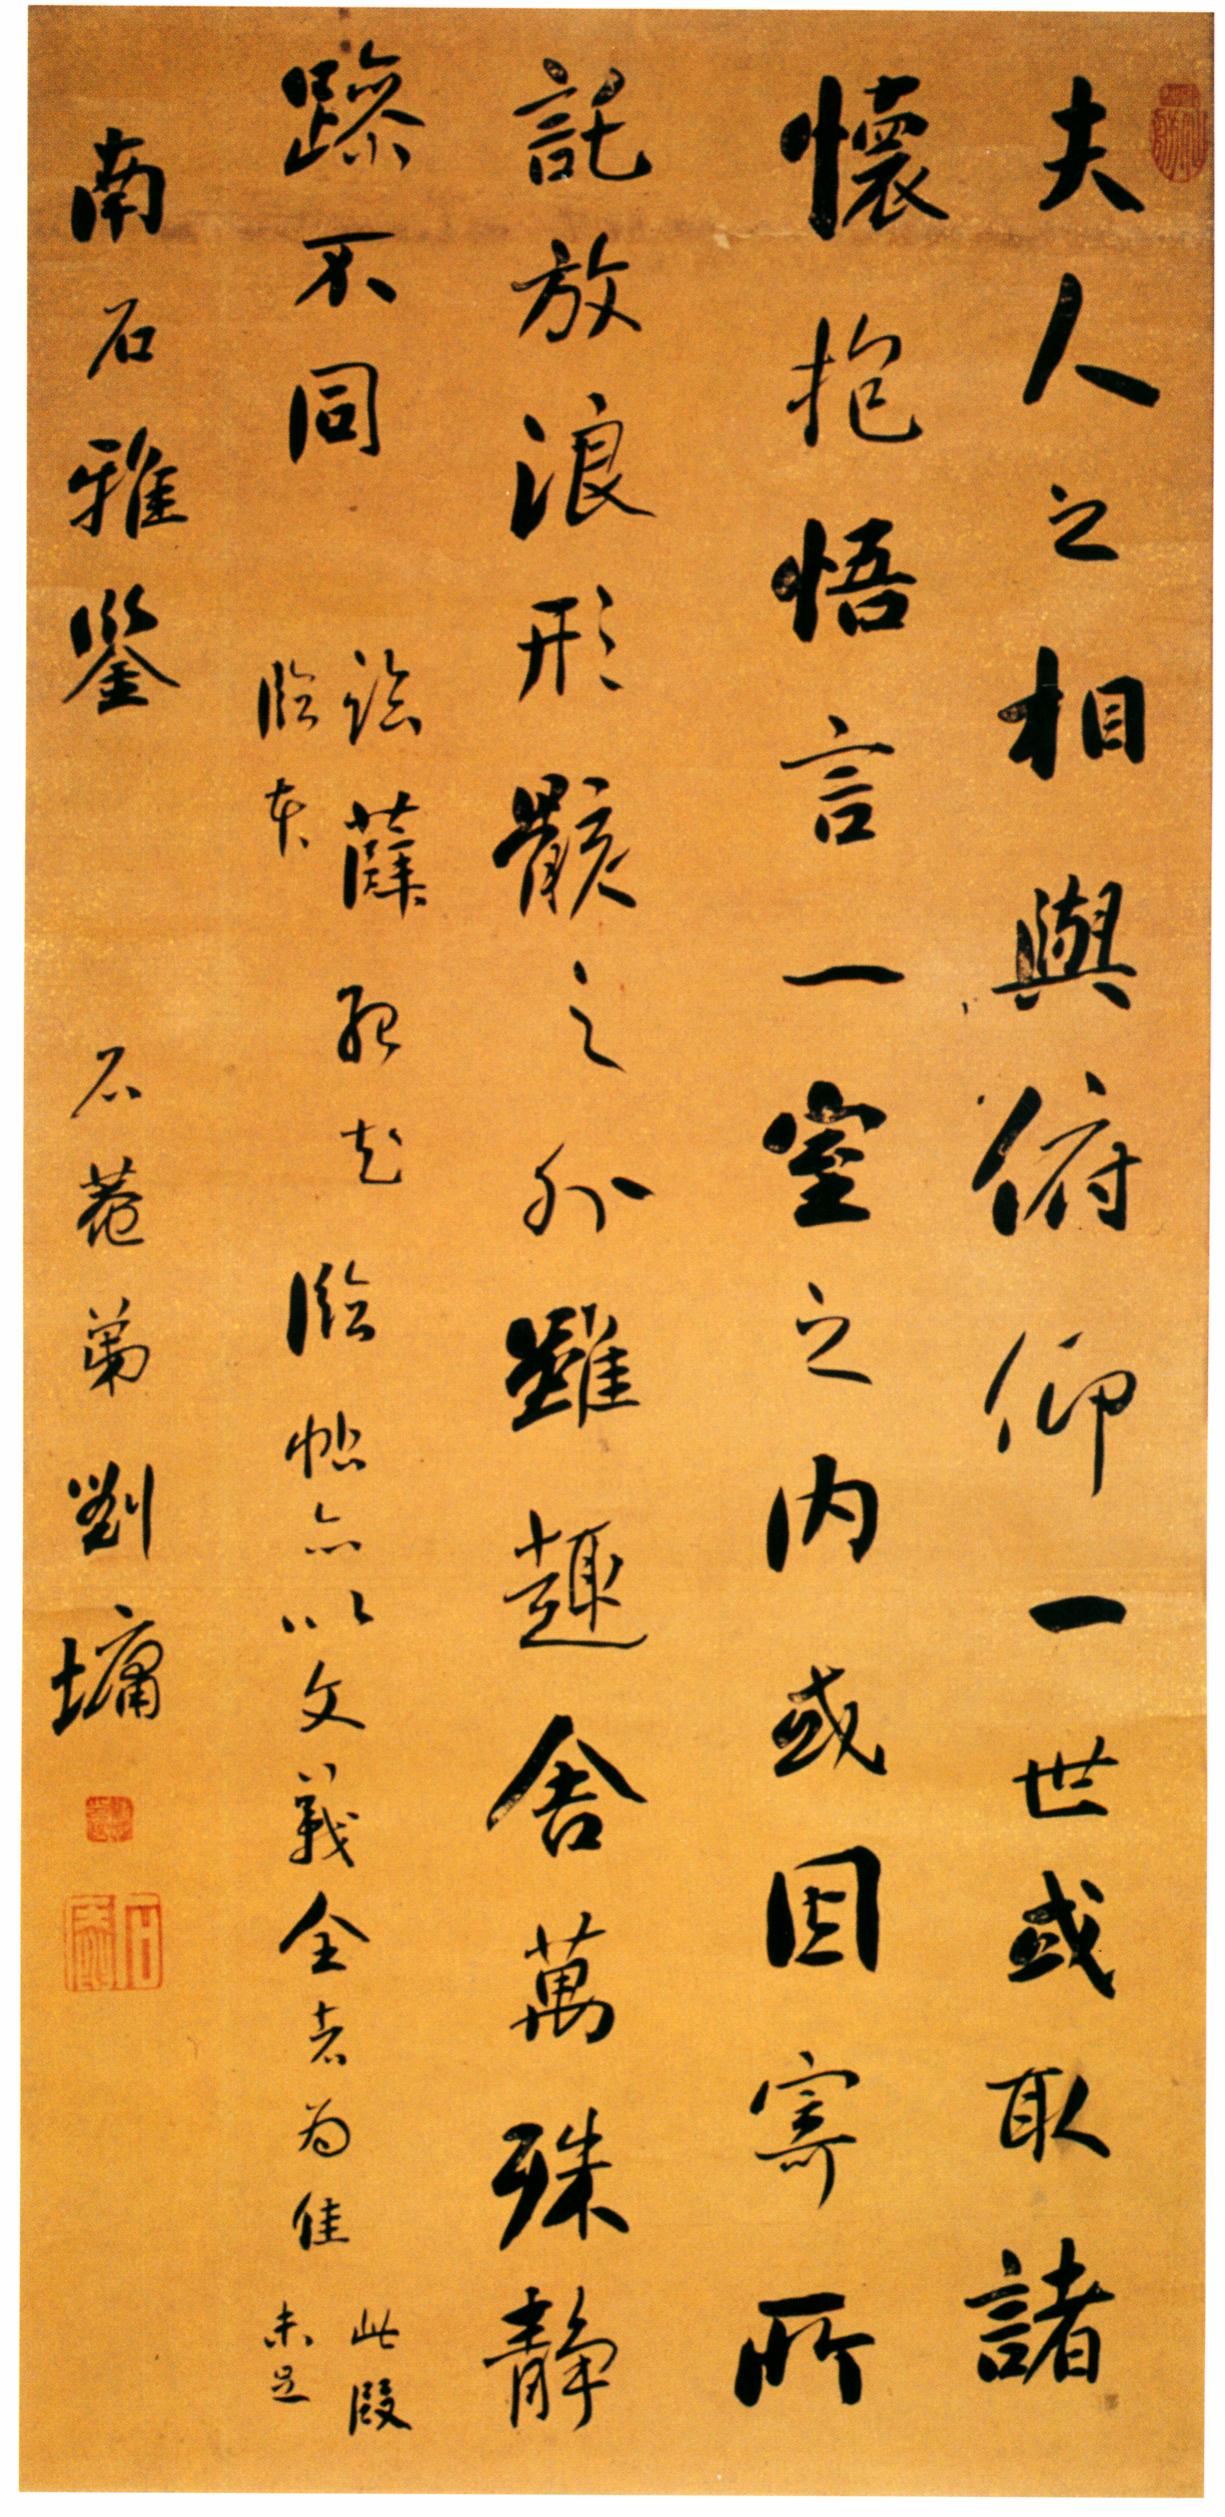 夫人之相與俯仰一世或取諸
懷抱悟言一室之內或因寄所
託放浪形骸之外雖趣舍萬殊静
躁不同
薛
臨本
臨帖亦以文義全者為佳
此段
未足
南石雅鑒
石菴弟劉墉